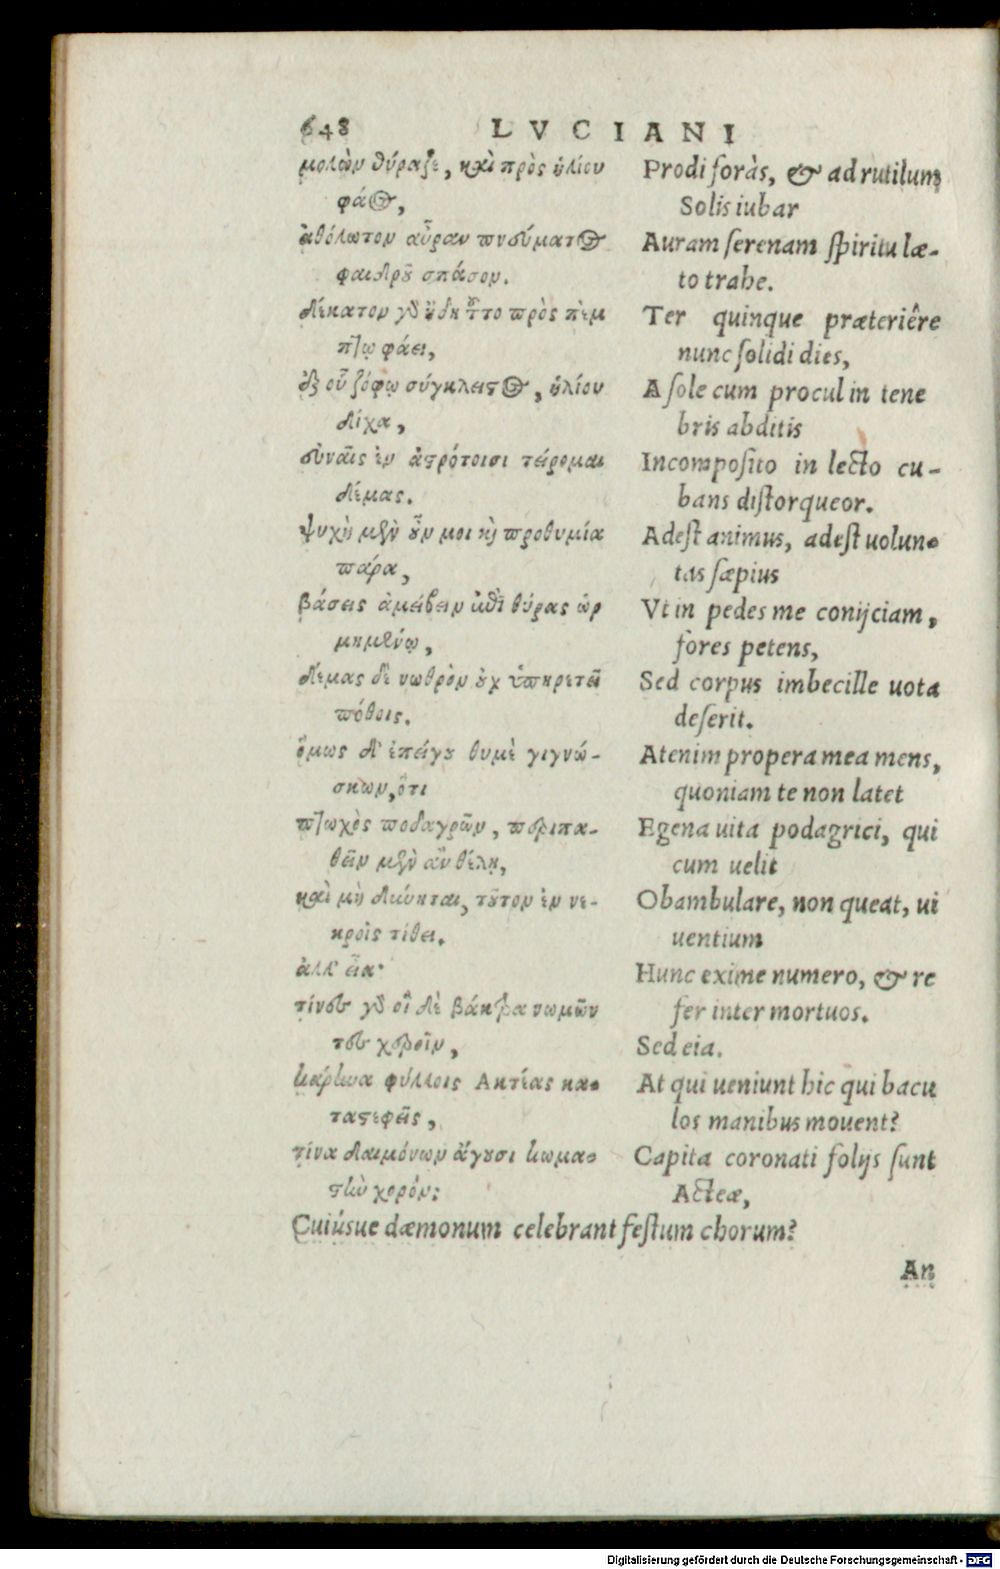 648 LVCIANI
μολὼν θύραζε, καὶ πρὸς ἡλίου
φάος,
ἀθόλωτον αὖραν πνεύματος
φαιδροῦ σπάσον.
δέκατον γὸ ἤδη τοῦτο πρὸς πέμ
πτῳ φάει,
ἐξ οὗ ζόφῳ σύγκλειστος, ἡλίου
δίχα,
εὐναῖς ἐν ἀστρότοισι τείρομαι
δέμας.
ψυχὴ μὲν οὖν μοι καὶ προθυμία
πάρα,
βάσεις ἀμείβειν ἐπὶ θύρας ὡρ
μημένῳ,
δέμας δὲ νωθρὸν οὐχ ὑπηρετεῖ
πόθοις.
ὅμως δ' ἐπείγου θυμὲ γιγνώ-
σκων, ὅτι
πτωχὸς ποδαγρῶν, περιπα-
θεῖν μὲν ἂν θέλῃ,
καὶ μὴ δύνηται, τοῦτον ἐν νε-
κροῖς τίθει.
ἀλλ' εἶα·
τίνες γὸ οἳ δὲ βάκτρα νωμῶν
τες χεροῖν,
κάρηνα φύλλοις Ακτέας κα-
ταστεφεῖς,
τίνα δαιμόνων ἄγουσι κωμα-
στὴν χορόν;
Prodi foràs, & ad rutilum
Solis iubar
Auram serenam spiritu læ-
to trahe.
Ter quinque præteriêre
nunc solidi dies,
A sole cum procul in tene
bris abditis
Incomposito in lecto cu-
bans distorqueor.
Adest animus, adest uolun-
tas sæpius
Vt in pedes me conijciam,
fores petens,
Sed corpus imbecille uota
deserit.
Atenim propera mea mens,
quoniam te non latet
Egena uita podagrici, qui
cum uelit
Obambulare, non queat, ui
uentium
Hunc exime numero, & re
fer inter mortuos.
Sed eia.
At qui ueniunt hic qui bacu
los manibus mouent?
Capita coronati folijs sunt
Acteæ,
Cuiúsue dæmonum celebrant festum chorum?
An
Digitalisierung gefördert durch die Deutsche Forschungsgemeinschaft - DFG